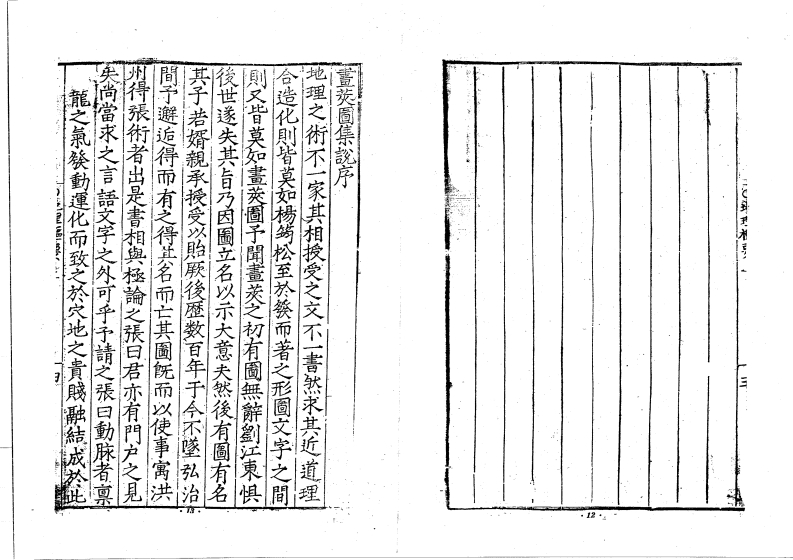 畫莢圖集說序
地理之術不一家其相授受之文不一書然求其近道理
合造化則皆莫如楊筠松至於發而著之形圖文字之間
則又皆莫如畫莢圖予聞畫莢之初有圖無辭劉江東惧
後世遂失其旨乃因圖立名以示大意夫然後有圖有名
其子若婿親承授受以貽厥後歷数百年于今不墜弘治
間予邂逅得而有之得其名而亡其圖旣而以使事寓洪
州得張術者出是書相與極論之張曰君亦有門户之見
矣尚當求之言語文字之外可乎予請之張曰動脉者禀
龍之氣發動運化而致之於穴地之貴賤融結成於此
十四
十三
·12·